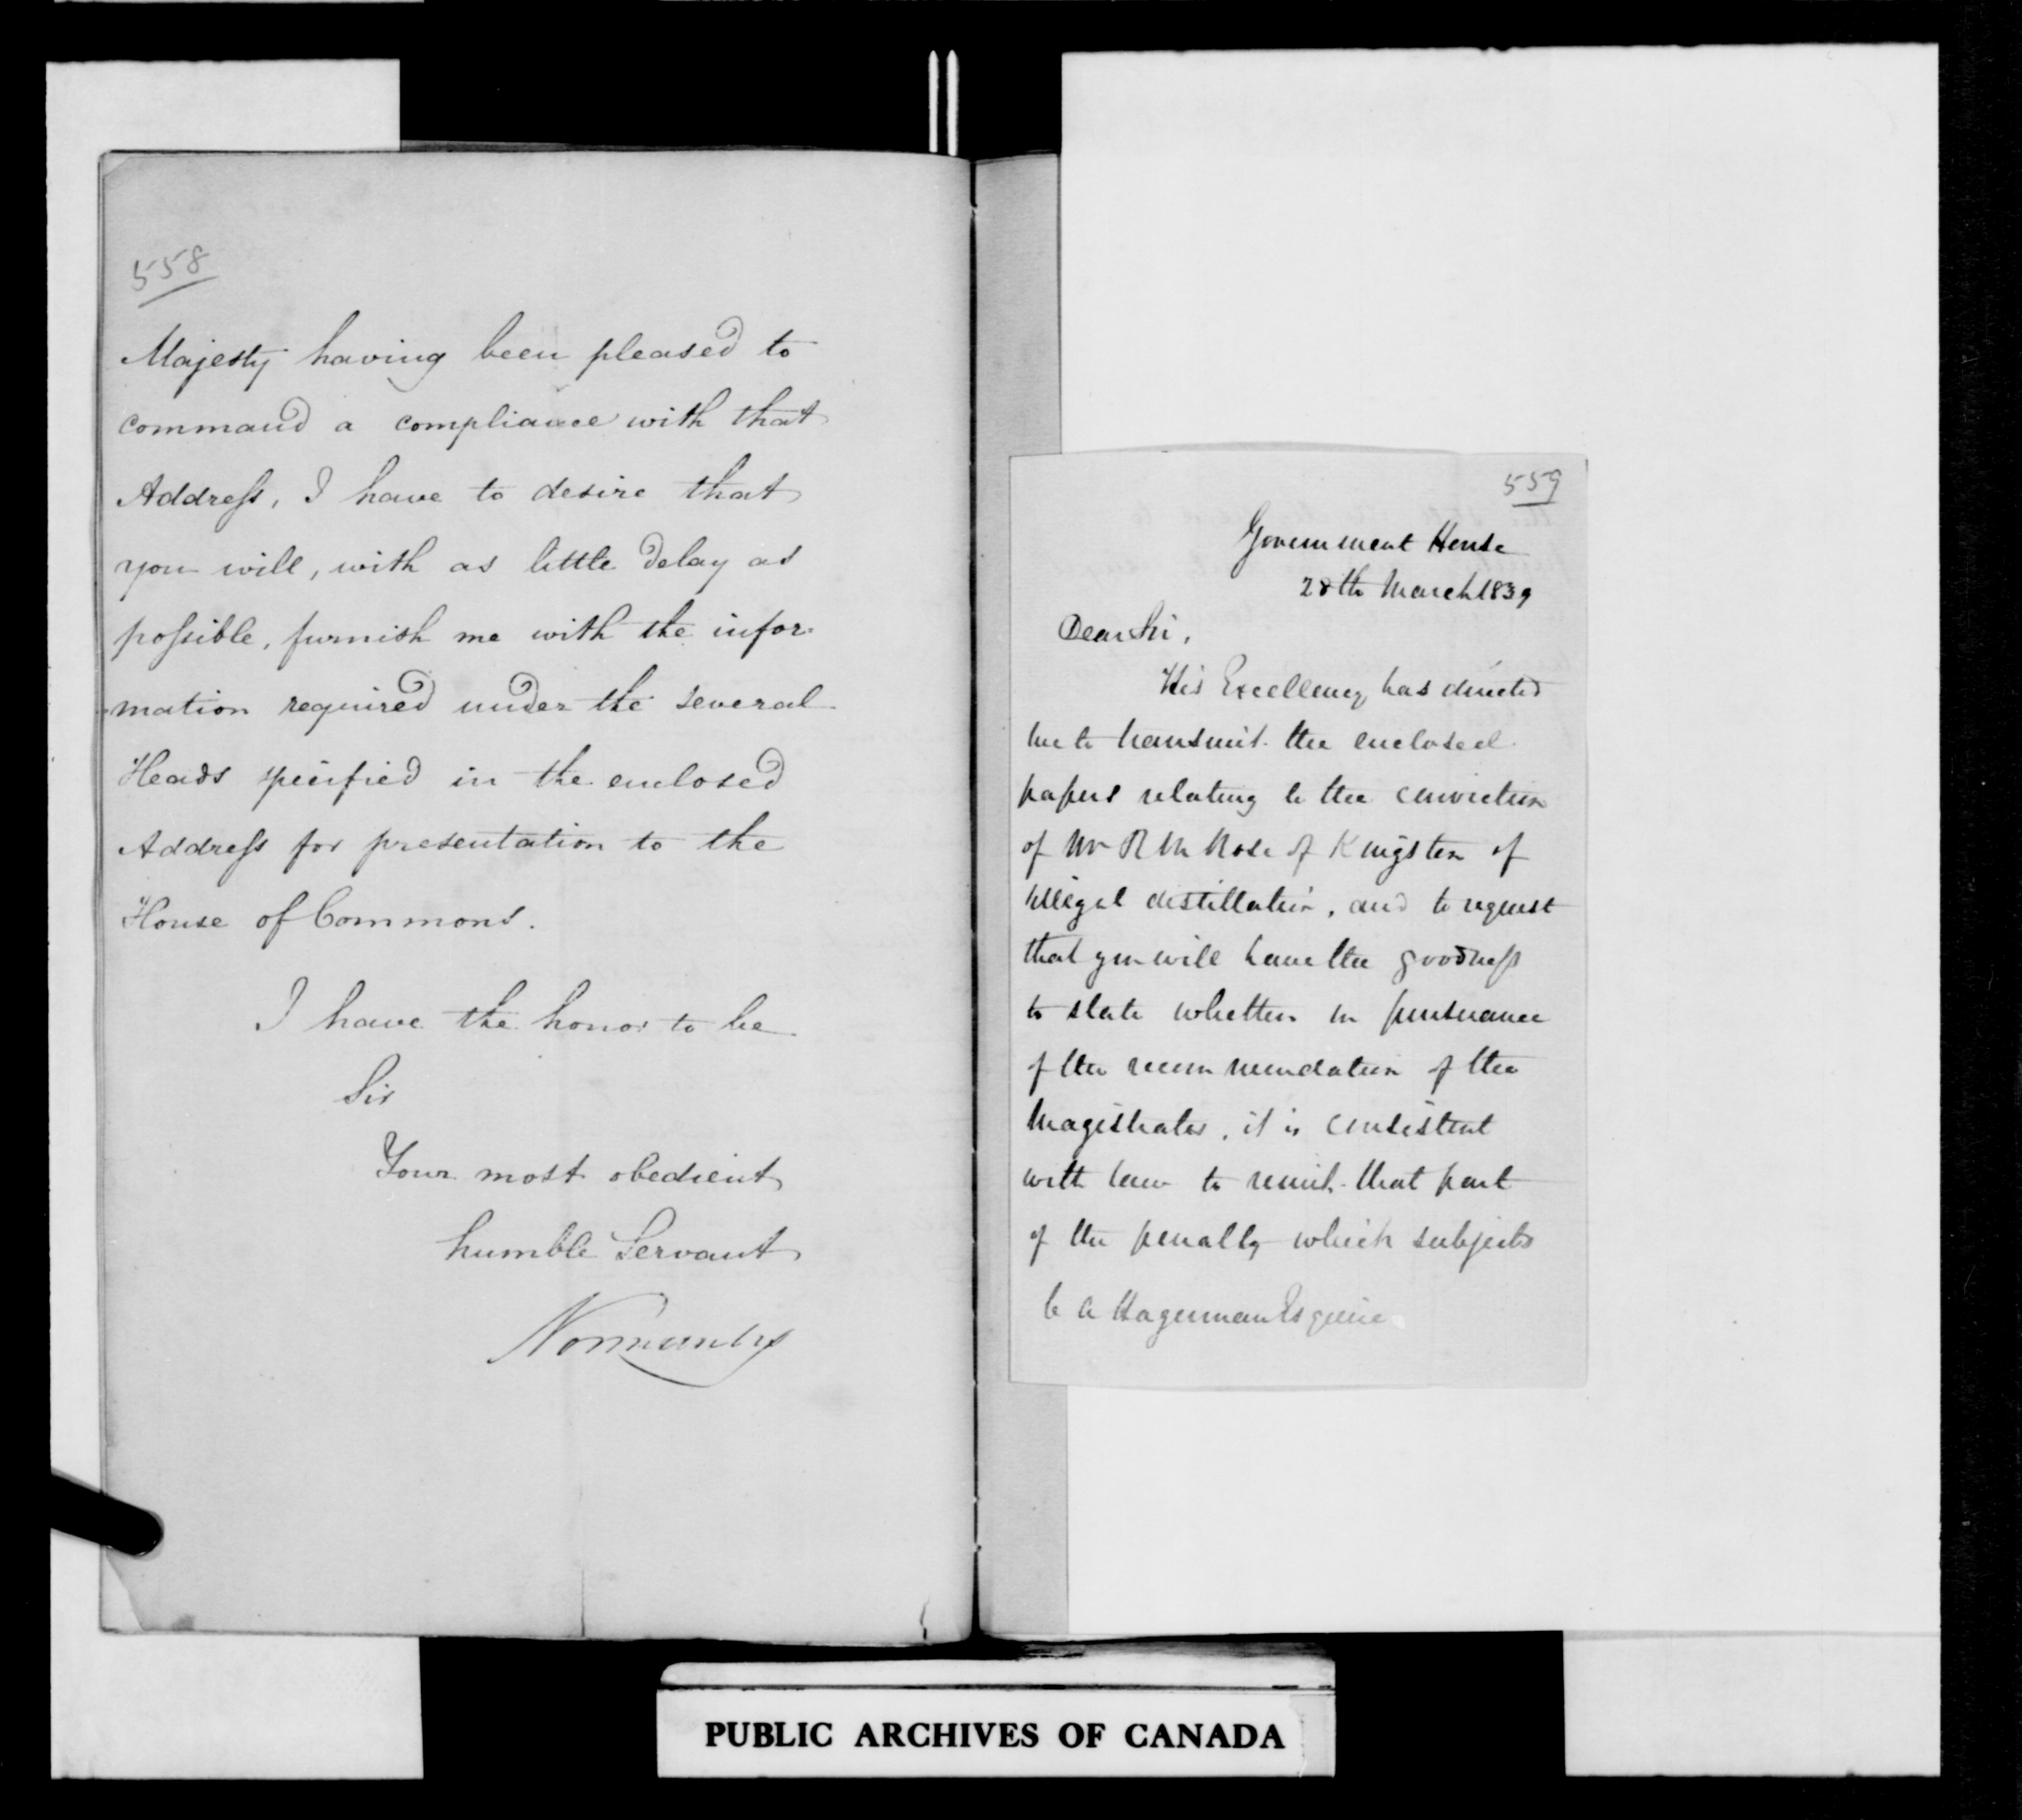 558
Majesty having been pleased to
command a compliance with that
Address, I have to desire that
you will, with as little delay as
possible, furnish me with the infor-
mation required under the several
Heads specified in the enclosed
Address for presentation to the
House of Commons.
I have the honor to be
Sir
Your most obedient
humble Servant
Normanby
559
Government House
28th March 1839
Dear Sir,
His Excellency has directed
me to transmit the enclosed
papers relating to the conviction
of Mr R M Rose of Kingston of
illegal distillation, and to request
that you will have the goodness
to state whether in pursuance
of the recommendation of the
Magistrates, it is consistent
with law to remit that part
of the penalty which subjects
C A Hagerman Esquire
PUBLIC ARCHIVES OF CANADA